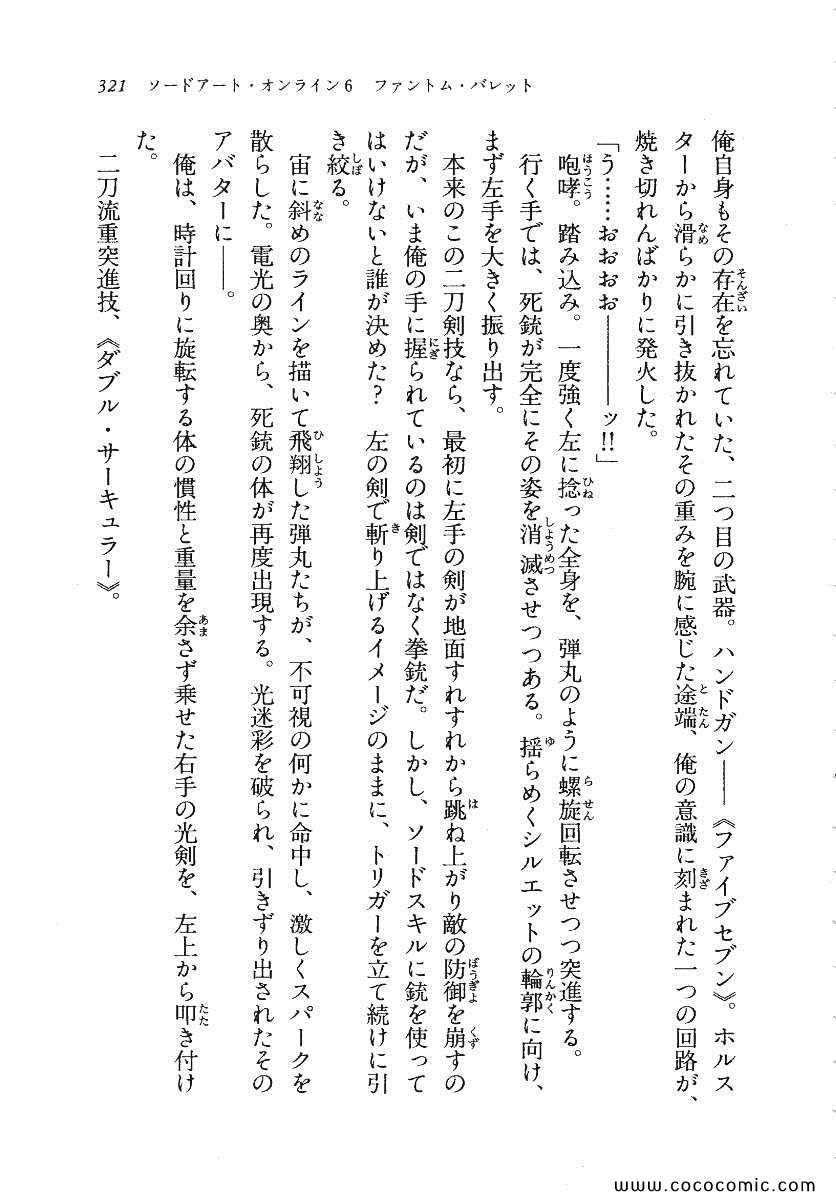 321　ソードアート・オンライン6　ファントム・バレット
俺自身もその存在を忘れていた、二つ目の武器。ハンドガン――《ファイブセブン》。ホルス
ターから滑らかに引き抜かれたその重みを腕に感じた途端、俺の意識に刻まれた一つの回路が、
焼き切れんばかりに発火した。
「う……ぉぉぉぉ――――ッ!!」
咆哮。踏み込み。一度強く左に捻った全身を、弾丸のように螺旋回転させつつ突進する。
行く手では、死銃が完全にその姿を消滅させつつある。揺らめくシルエットの輪郭に向け、
まず左手を大きく振り出す。
本来のこの二刀剣技なら、最初に左手の剣が地面すれすれから跳ね上がり敵の防御を崩すの
だが、いま俺の手に握られているのは剣ではなく拳銃だ。しかし、ソードスキルに銃を使って
はいけないと誰が決めた？　左の剣で斬り上げるイメージのままに、トリガーを立て続けに引
き絞る。
宙に斜めのラインを描いて飛翔した弾丸たちが、不可視の何かに命中し、激しくスパークを
散らした。電光の奥から、死銃の体が再度出現する。光迷彩を破られ、引きずり出されたその
アバターに――。
俺は、時計回りに旋転する体の慣性と重量を余さず乗せた右手の光剣を、左上から叩き付け
た。
二刀流重突進技、《ダブル・サーキュラー》。
www.cococomic.com